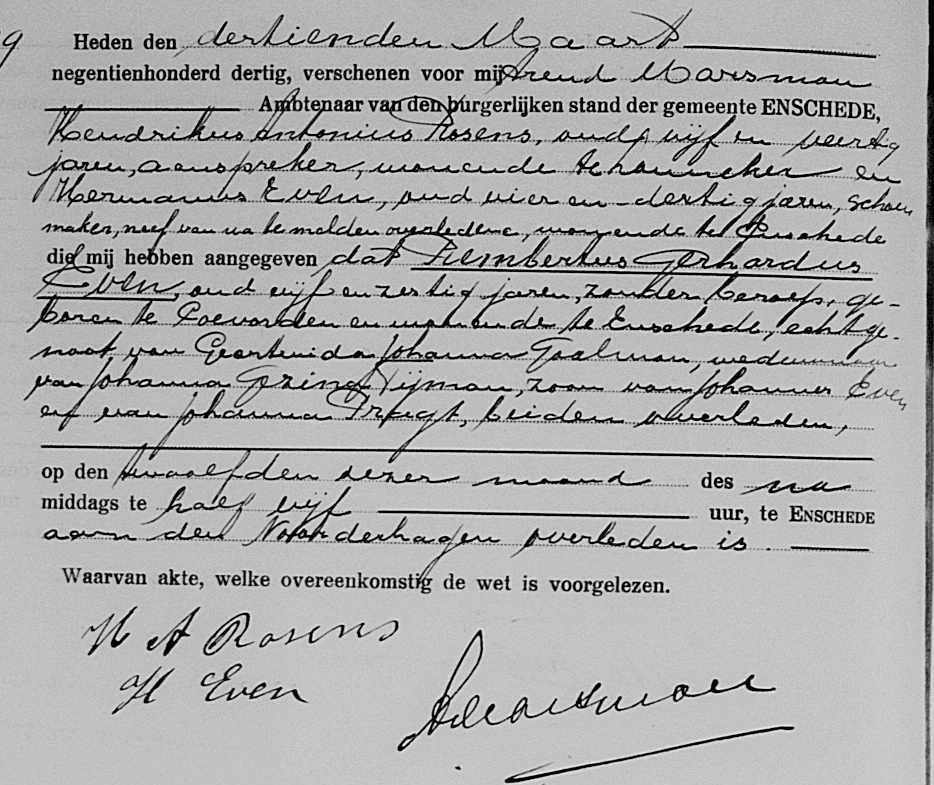 9
Heden den dertienden Maart
negentienhonderd dertig, verschenen voor mij Arend Marsman
Ambtenaar van den burgerlijken stand der gemeente ENSCHEDE,
Hendrikus Antonius Rosens, oud vijf en veertig
jaren, aanspreker, wonende te Lonneker en
Hermanus Even, oud vier en dertig jaren, schoen
maker, neef van na te melden overledene, wonende te Enschede
die mij hebben aangegeven dat Rembertus Gerhardus
Even, oud vijf en zestig jaren, zonder beroep, ge-
boren te Coevorden en wonende te Enschede, echtge-
noot van Geertruida Johanna Gaalman, weduwnaar
van Johanna Gezina Nijman, zoon van Johannes Even
en van Johanna Tragt, beiden overleden,
op den twaalfden dezer maand des na
middags te half vijf uur, te ENSCHEDE
aan den Noorderhagen overleden is.
Waarvan akte, welke overeenkomstig de wet is voorgelezen.
H A Rosens
H Even
AMarsman